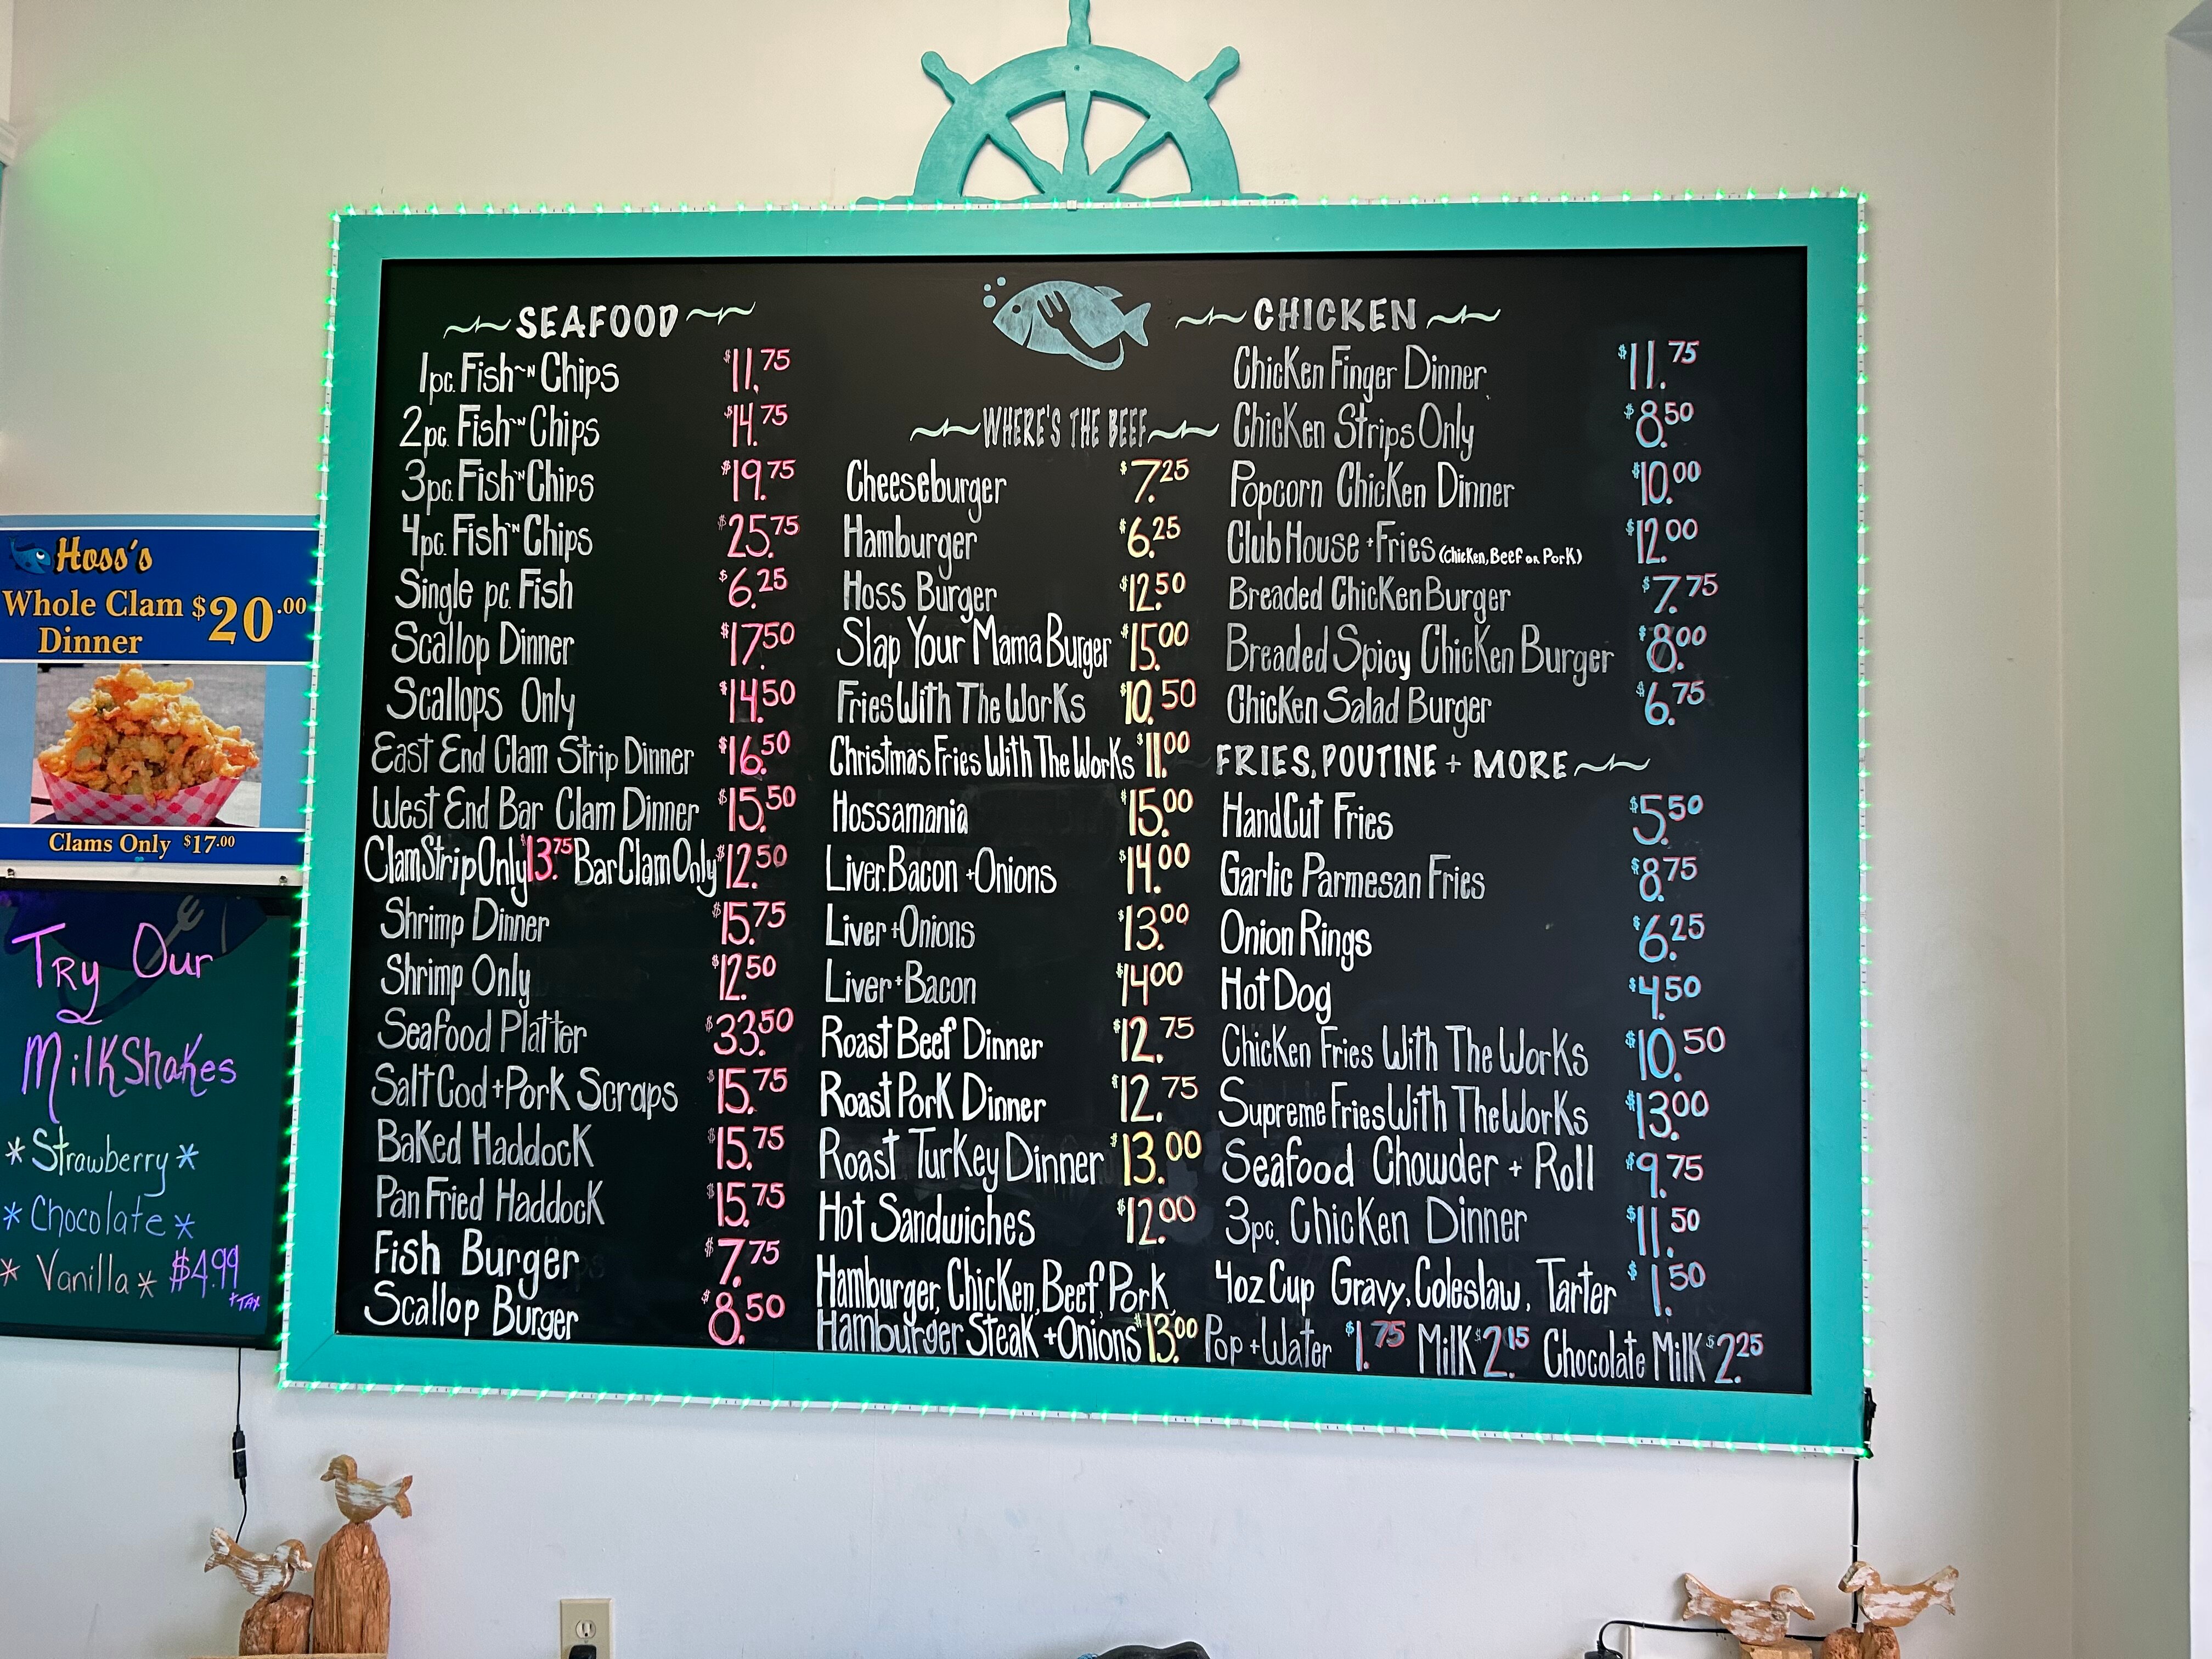 SEAFOOD
1pc. Fish~N Chips $11.75
2pc. Fish~N Chips $14.75
3pc. Fish~N Chips $19.75
4pc. Fish~N Chips $25.75
Single pc. Fish $6.25
Scallop Dinner $17.50
Scallops Only $14.50
East End Clam Strip Dinner $16.50
West End Bar Clam Dinner $15.50
Clam Strip Only $13.75 Bar Clam Only $12.50
Shrimp Dinner $15.75
Shrimp Only $12.50
Seafood Platter $33.50
Salt Cod + Pork Scraps $15.75
Baked Haddock $15.75
Pan Fried Haddock $15.75
Fish Burger $7.75
Scallop Burger $8.50
WHERE'S THE BEEF
Cheeseburger $7.25
Hamburger $6.25
Hoss Burger $12.50
Slap Your Mama Burger $15.00
Fries With The Works $10.50
Christmas Fries With The Works $11.00
Hossamania $15.00
Liver, Bacon + Onions $14.00
Liver + Onions $13.00
Liver + Bacon $14.00
Roast Beef Dinner $12.75
Roast Pork Dinner $12.75
Roast Turkey Dinner $13.00
Hot Sandwiches $12.00
Hamburger, Chicken, Beef, Pork
Hamburger Steak + Onions $13.00
CHICKEN
Chicken Finger Dinner $11.75
Chicken Strips Only $8.50
Popcorn Chicken Dinner $10.00
Club House + Fries (Chicken, Beef or Pork) $12.00
Breaded Chicken Burger $7.75
Breaded Spicy Chicken Burger $8.00
Chicken Salad Burger $6.75
FRIES, POUTINE + MORE
Hand Cut Fries $5.50
Garlic Parmesan Fries $8.75
Onion Rings $6.25
Hot Dog $4.50
Chicken Fries With The Works $10.50
Supreme Fries With The Works $13.00
Seafood Chowder + Roll $9.75
3pc. Chicken Dinner $11.50
4oz Cup Gravy, Coleslaw, Tarter $1.50
Pop + Water $1.75 Milk $2.15 Chocolate Milk $2.25
Hoss's
Whole Clam $20.00
Dinner
Clams Only $17.00
Try Our
MilkShakes
*Strawberry*
*Chocolate*
*Vanilla* $4.99
+TAX